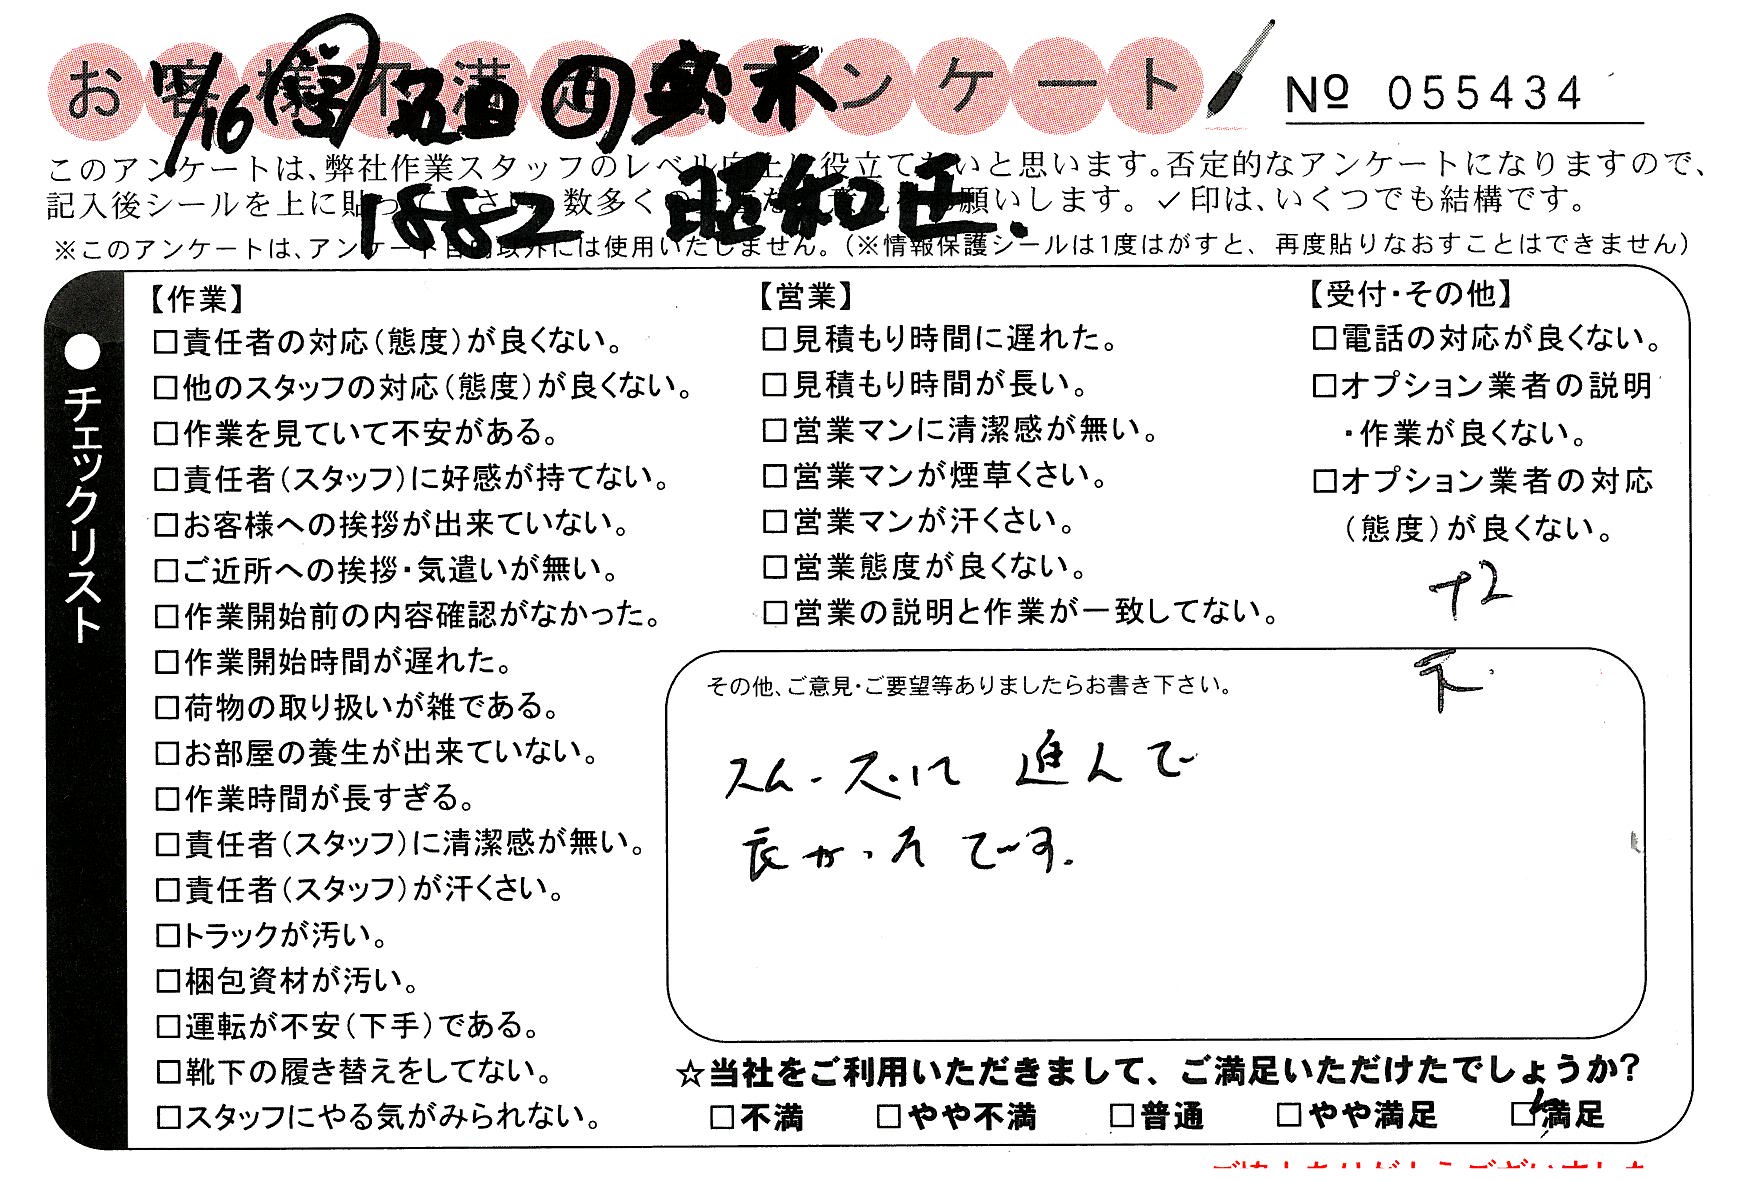 お客様不満足度アンケート
№ 055434
11/16
1882 昭和区.
このアンケートは、弊社作業スタッフのレベル向上に役立てたいと思います。否定的なアンケートになりますので、
記入後シールを上に貼って下さい。数多くのご意見をお願いします。✓印は、いくつでも結構です。
※このアンケートは、アンケート目的以外には使用いたしません。(※情報保護シールは1度はがすと、再度貼りなおすことはできません)
●チェックリスト
【作業】
□責任者の対応(態度)が良くない。
□他のスタッフの対応(態度)が良くない。
□作業を見ていて不安がある。
□責任者(スタッフ)に好感が持てない。
□お客様への挨拶が出来ていない。
□ご近所への挨拶・気遣いが無い。
□作業開始前の内容確認がなかった。
□作業開始時間が遅れた。
□荷物の取り扱いが雑である。
□お部屋の養生が出来ていない。
□作業時間が長すぎる。
□責任者(スタッフ)に清潔感が無い。
□責任者(スタッフ)が汗くさい。
□トラックが汚い。
□梱包資材が汚い。
□運転が不安(下手)である。
□靴下の履き替えをしてない。
□スタッフにやる気がみられない。
【営業】
□見積もり時間に遅れた。
□見積もり時間が長い。
□営業マンに清潔感が無い。
□営業マンが煙草くさい。
□営業マンが汗くさい。
□営業態度が良くない。
□営業の説明と作業が一致してない。
【受付・その他】
□電話の対応が良くない。
□オプション業者の説明
・作業が良くない。
□オプション業者の対応
(態度)が良くない。
+2
その他、ご意見・ご要望等ありましたらお書き下さい。
スムーズに進んで
良かったです.
☆当社をご利用いただきまして、ご満足いただけたでしょうか?
□不満 □やや不満 □普通 □やや満足 □満足